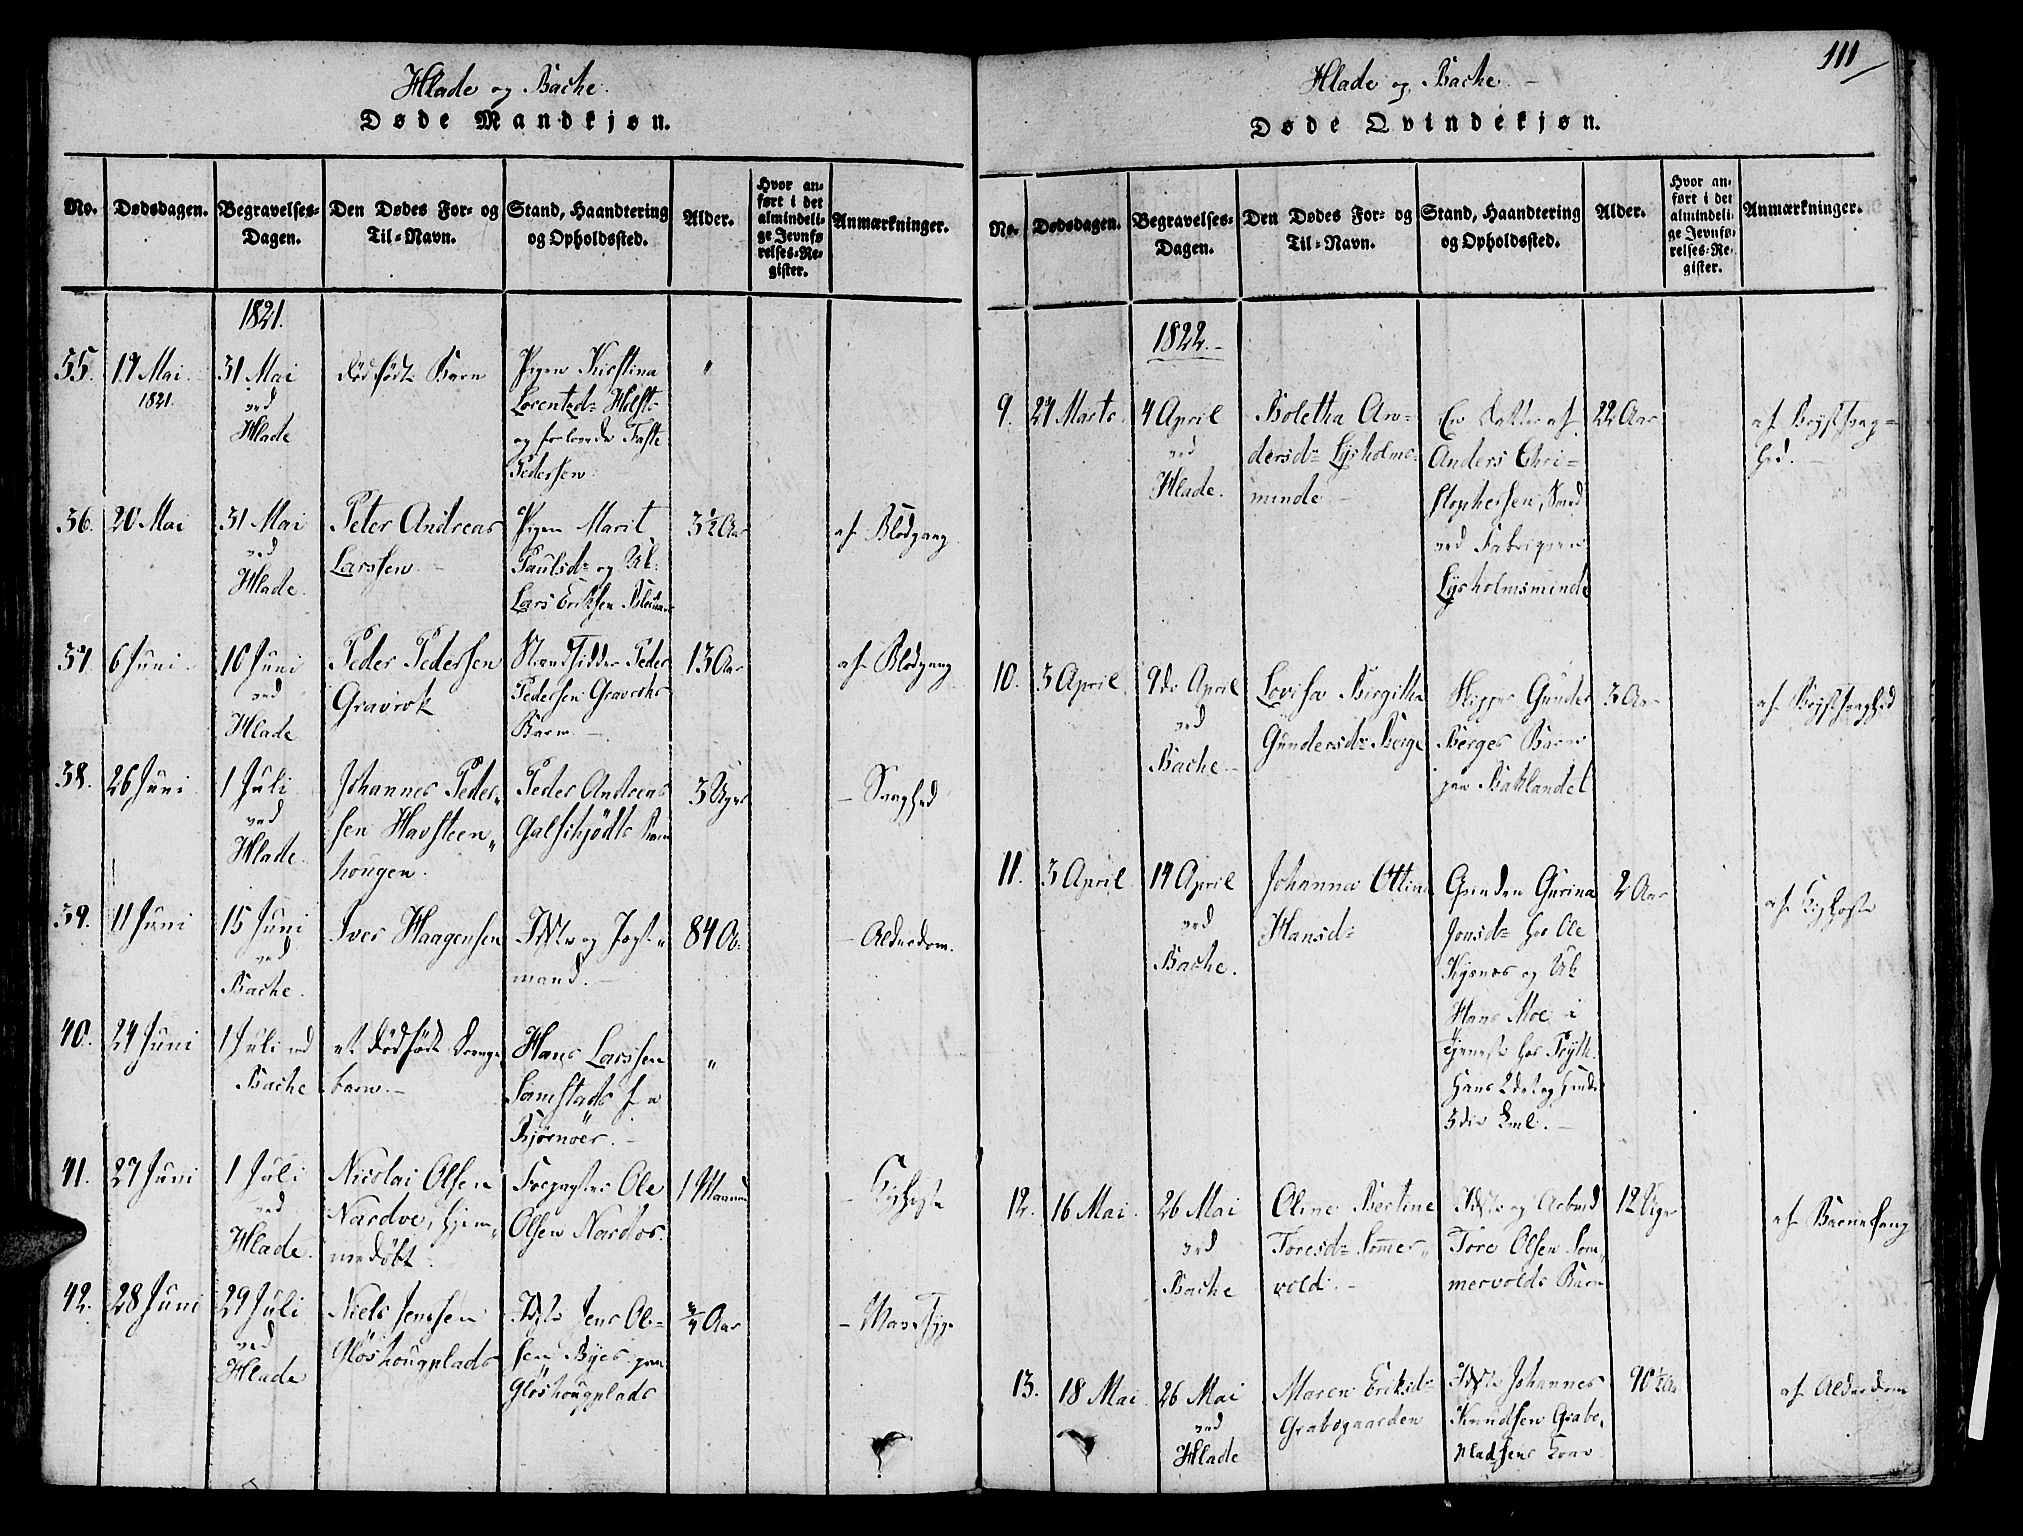 Hlade og Bache.
Døde Mandkjøn.
No.
Dødsdagen.
Begravelses-
Dagen.
Den Dødes For- og
Til-Navn.
Stand, Haandtering
og Opholdssted.
Alder.
Hvor an-
ført i det
almindeli-
ge Jevnfø-
relses-Re-
gister.
Anmærkninger.
1821.
35.
19 Mai.
1821.
31 Mai
ved
Hlade
dødfødt Barn
Pigen Kirstina
Lorentzd= Holst
og
Pedersen.
"
36.
20 Mai
31 Mai
ved
Hlade.
Peter Andreas
Larssen.
Pigen Marit
Paulsd= og Uk.
Lars Eriksen
3½ Aar
af Blodgang
37.
6 Juni
10 Juni
ved
Hlade
Peder Pedersen
Gravrok
Strandsidder Peder
Pedersen Gravroks
Barn.
13 Aar
af Blodgang
38.
26 Juni
1 Juli
ved
Hlade.
Johannes Peder-
sen Havsteen-
hougen.
Peder Andreas
Galschjødts Barn
3 Uger
- Svaghed
39.
11 Juni
15 Juni
ved
Bache.
Iver Haagensen
Idste og
mand.
84 A.
- Alderdom.
40.
24 Juni
1 Juli ved
Bache
et dødfødt Drenge
barn.-
Hans Larssen
Samstads
Bjørnöer.
"
41.
27 Juni
1 Juli
ved
Hlade.
Nicolai Olsen
Nardoe, hjem-
medøbt.
Forpagter Ole
Olsen Nardos.
1 Maaned
- Kighoste
42.
28 Juni
29 Juli
ved
Hlade
Niels Jenssen
Gløshougplads
Idste Jens Ol-
sen Byes paa
Gløshougplads
¾ Aar
- Mavesyge
111
Hlade og Bache.-
Døde Qvindekjøn.
No.
Dødsdagen.
Begravelses-
Dagen.
Den Dødes For- og
Til-Navn.
Stand, Haandtering
og Opholdssted.
Alder.
Hvor an-
ført i det
almindeli-
ge Jevnfø-
relses-Re-
gister.
Anmærkninger.
1822.-
9.
27 Marts.
4 April
ved
Hlade.
Boletha An-
dersd= Lysholms-
minde
En Datter af
Anders Chri-
stophersen, Smed
ved Fabriquen
Lysholmsminde
22 Aar
af Brystsvag-
hed.
10.
3 April
9de April
ved
Bache.
Lovisa Birgitha
Gundersd= Berge
Skipper Gunder
Berges Barn
paa Baklandet
3 Aar
af Brystsvaghed
11.
3 April
14 April
ved
Bache.
Johanna Ottina
Hansd=
Qvinden Gurina
Jonsd= hos Ole
og Uk
Hans Moe i
tjeneste hos
Hans 2det og hendes
3die Leml.
2 Aar
af Kighoste
12.
16 Mai.
26 Mai
ved
Bache
Oline Bertine
Toresd= Sommer-
vold.
Idste og Arbmd
Tore Olsen Som-
mervolds Barn
12 Uger
af Barnesang
13.
18 Mai.
26 Mai
ved
Hlade
Maren Eriksd=
Grabogaarden
Idste Johannes
Knudsen Grabe-
pladsens Kone
90½ Aar
af Alderdom